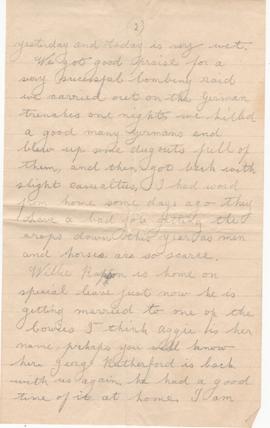 (2)
yesterday and today is very wet.
We got good praise for a
very successful bombing raid
we carried out on the German
trenches one night, we killed
a good many Germans and
blew up some dugouts full of
them, and then got back with
slight casualties, I had word
from home some days ago they
have a bad job getting the
crops down this year as men
and horses are so scarce.
Willie is home on
special leave just now he is
getting married to one of the
Cowies I think Aggie is her
name, perhaps you will know
her. George Rutherford is back
with us again, he had a good
time of it at home. I am